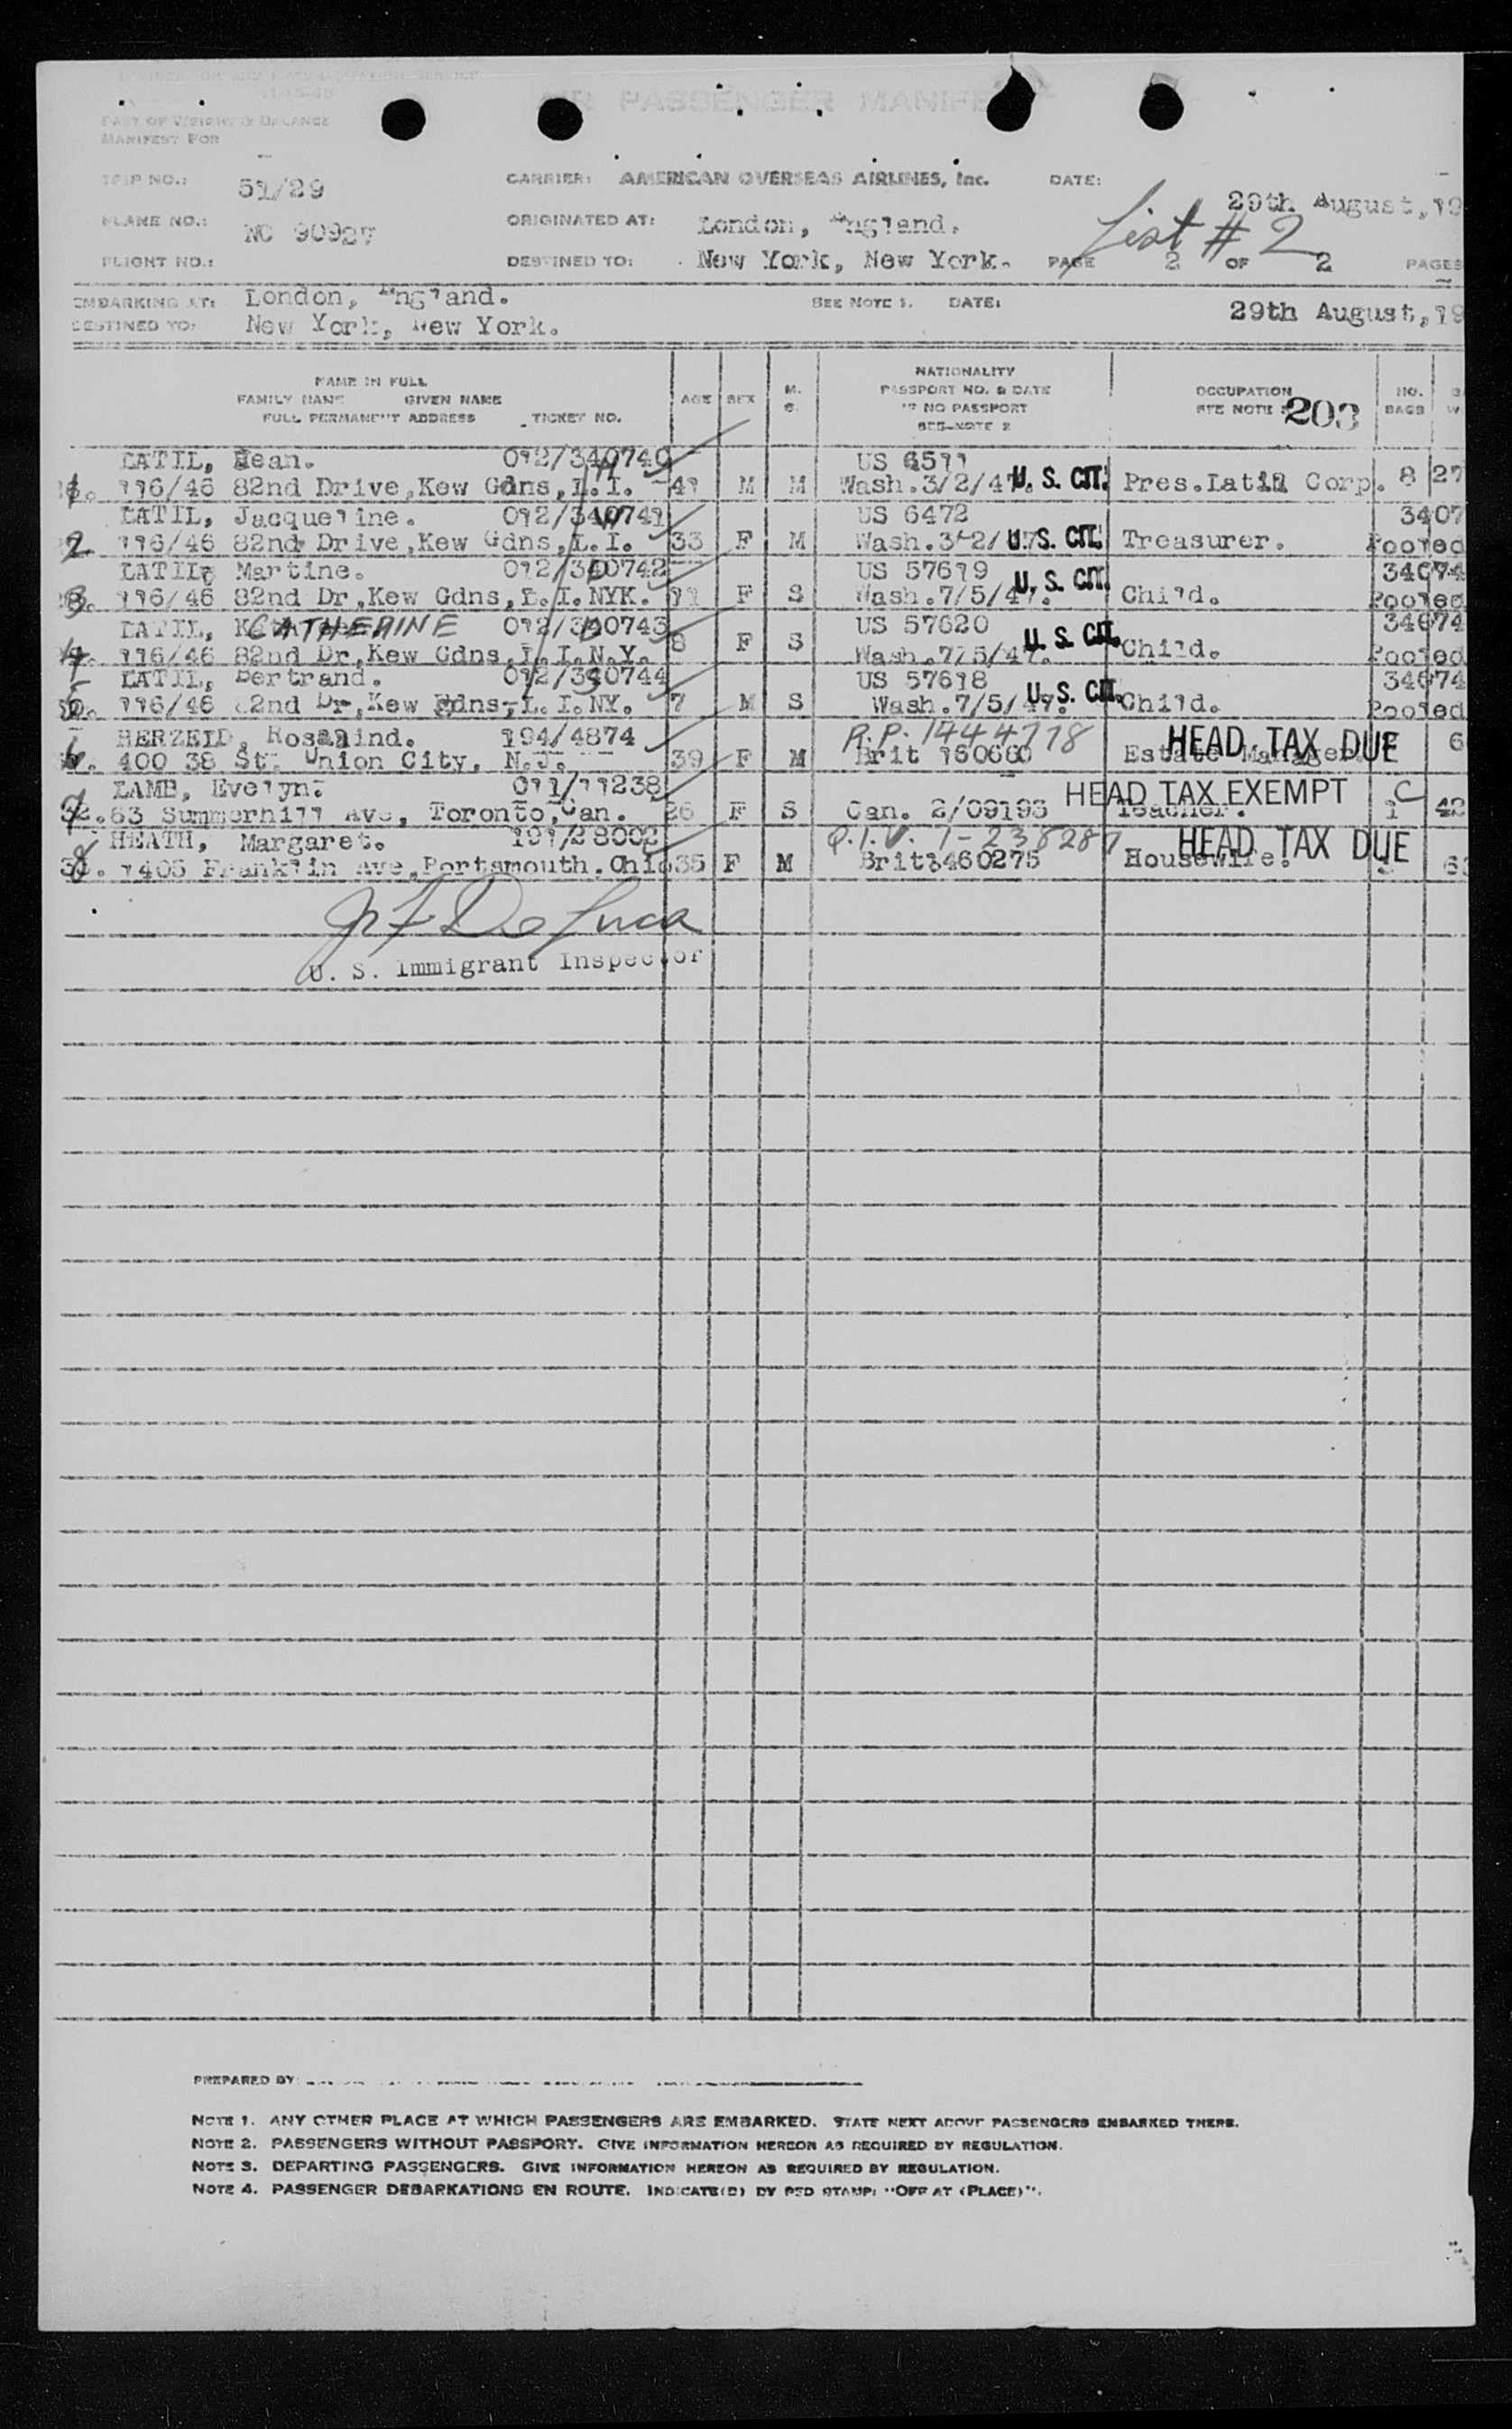 AIR PASSENGER MANIFEST
PART OF WEIGHT & BALANCE
MANIFEST FOR
TRIP NO.: 51/29 CARRIER: AMERICAN OVERSEAS AIRLINES, Inc. DATE: 29th August,19
PLANE NO.: NC 90927 ORIGINATED AT: London, England. List # 2
FLIGHT NO.: DESTINED TO: New York, New York. PAGE 2 OF 2 PAGES
EMBARKING AT: London, England. SEE NOTE 1. DATE: 29th August,19
DESTINED TO: New York, New York.
NAME IN FULL
FAMILY NAME GIVEN NAME
FULL PERMANENT ADDRESS TICKET NO.
AGE SEX M. S.
NATIONALITY
PASSPORT NO. & DATE
IF NO PASSPORT
SEE NOTE 2
OCCUPATION
SEE NOTE 203
NO. BAGS
LATIL, Jean. 012/340740 US 6511
1 116/46 82nd Drive,Kew Gdns,L.I. 41 M M Wash.3/2/47. U. S. CIT. Pres.Latil Corp. 8 27
LATIL, Jacqueline. 012/340741 US 6472 3407
2 116/46 82nd Drive,Kew Gdns,L.I. 33 F M Wash.3/2/47 U. S. CIT. Treasurer. Pooled
LATIL, Martine. 012/340742 US 57619 34074
3 116/46 82nd Dr,Kew Gdns,L.I.NYK. 11 F S Wash.7/5/47. U. S. CIT. Child. Pooled
LATIL, CATHERINE 012/340743 US 57620 34074
4 116/46 82nd Dr,Kew Gdns,L.I.N.Y. 8 F S Wash.7/5/47. U. S. CIT. Child. Pooled
LATIL, Bertrand. 012/340744 US 57618 34074
5 116/46 82nd Dr,Kew Gdns,L.I.NY. 7 M S Wash.7/5/47. U. S. CIT. Child. Pooled
HERZEID, Rosalind. 194/4874 R.P. 1444718 HEAD TAX DUE 6
6 400 38 St. Union City, N.J. 39 F M Brit 160660 Estate Manager
LAMB, Evelyn. 011/11238 HEAD TAX EXEMPT C
7 32. 63 Summerhill Ave, Toronto,Can. 26 F S Can. 2/09193 Teacher. 1 42
HEATH, Margaret. 191/28002 Q.I.V. 1-238287 HEAD TAX DUE
8 1405 Franklin Ave,Portsmouth,Ohio 35 F M Brit 460275 Housewife.
J F DeLuca
U. S. Immigrant Inspector
PREPARED BY:
NOTE 1. ANY OTHER PLACE AT WHICH PASSENGERS ARE EMBARKED. STATE NEXT ABOVE PASSENGERS EMBARKED THERE.
NOTE 2. PASSENGERS WITHOUT PASSPORT. GIVE INFORMATION HEREON AS REQUIRED BY REGULATION.
NOTE 3. DEPARTING PASSENGERS. GIVE INFORMATION HEREON AS REQUIRED BY REGULATION.
NOTE 4. PASSENGER DEBARKATIONS EN ROUTE. INDICATE(D) BY RED STAMP: "OFF AT (PLACE)".